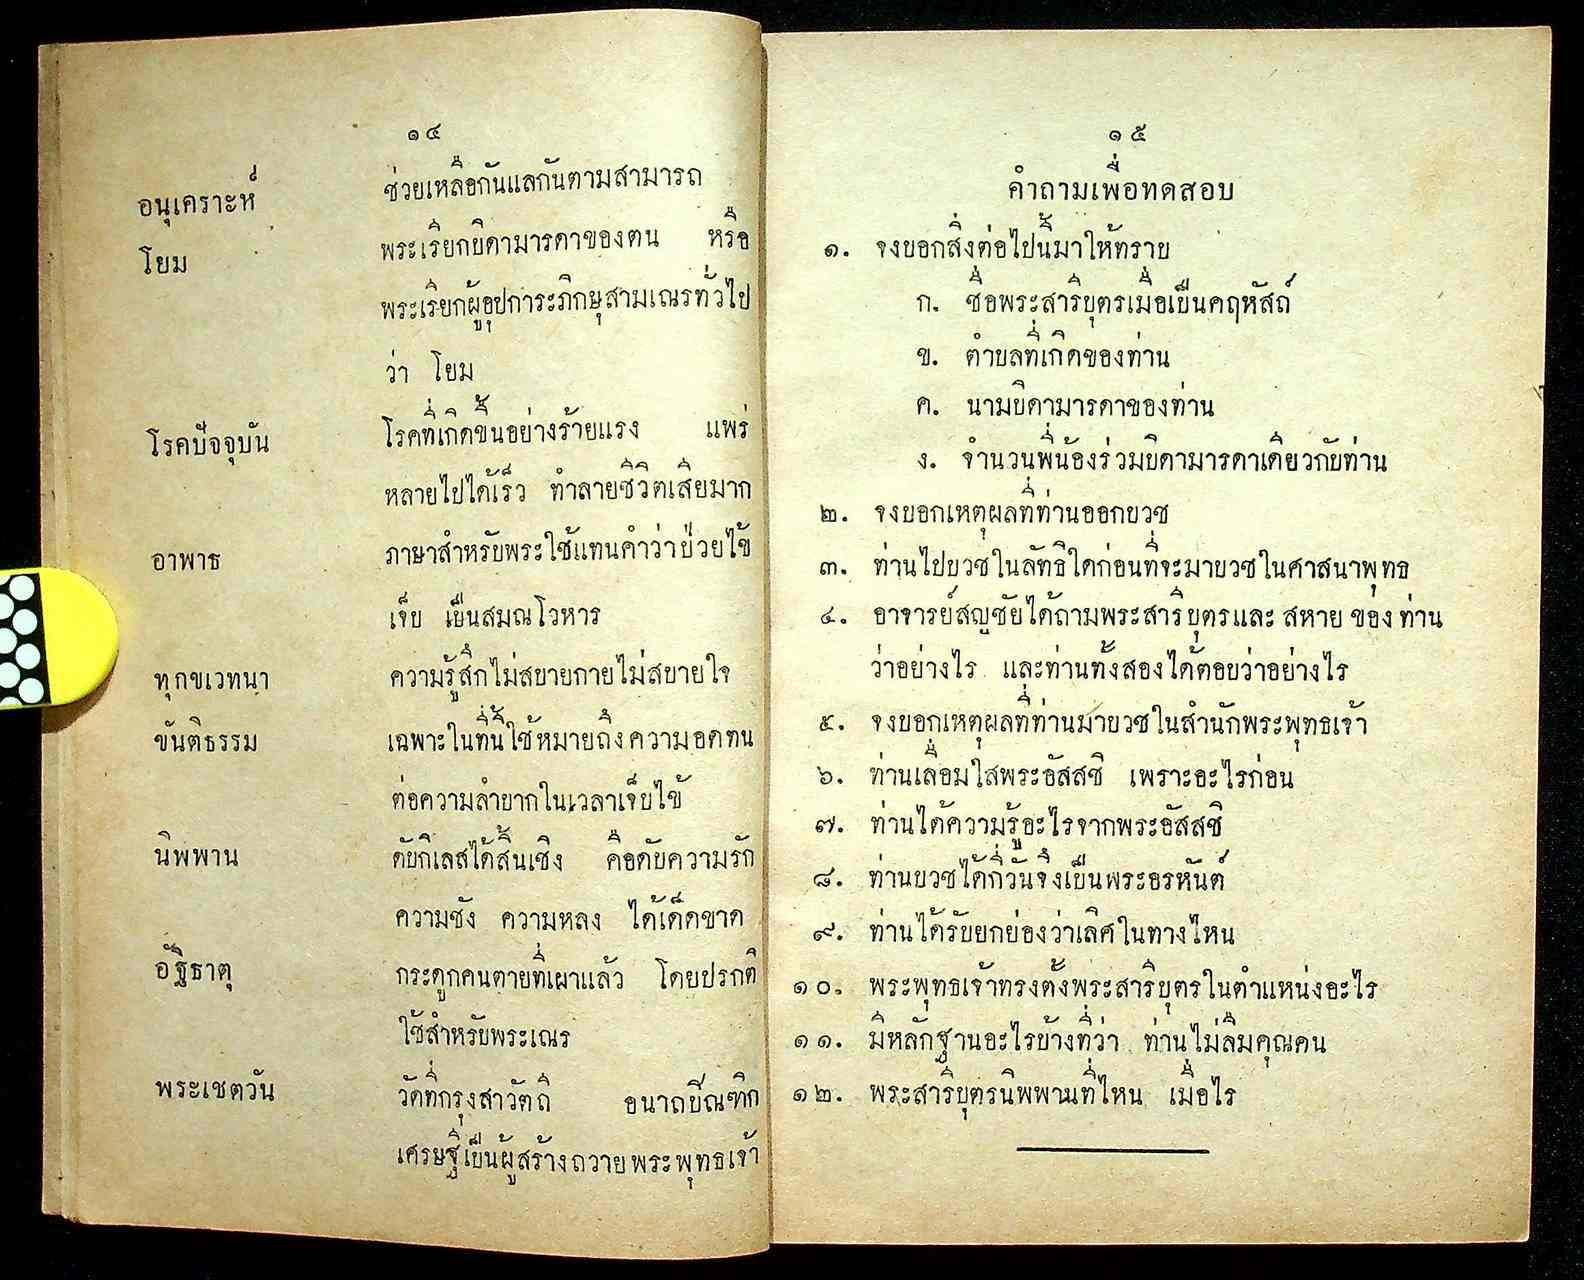 ๑๔
อนุเคราะห์ ช่วยเหลือกันแลกันตามสามารถ
โยม พระเรียกบิดามารดาของตน หรือ
พระเรียกผู้อุปการะภิกษุสามเณรทั่วไป
ว่า โยม
โรคปัจจุบัน โรคที่เกิดขึ้นอย่างร้ายแรง แพร่
หลายไปได้เร็ว ทำลายชีวิตเสียมาก
อาพาธ ภาษาสำหรับพระใช้แทนคำว่าป่วยไข้
เจ็บ เป็นสมณโวหาร
ทุกขเวทนา ความรู้สึกไม่สบายกายไม่สบายใจ
ขันติธรรม เฉพาะในที่นี้ใช้หมายถึงความอดทน
ต่อความลำบากในเวลาเจ็บไข้
นิพพาน ดับกิเลสได้สิ้นเชิง คือดับความรัก
ความชัง ความหลง ได้เด็ดขาด
อัฐิธาตุ กระดูกคนตายที่เผาแล้ว โดยปรกติ
ใช้สำหรับพระเณร
พระเชตวัน วัดที่กรุงสาวัตถี อนาถบิณฑิก
เศรษฐีเป็นผู้สร้างถวายพระพุทธเจ้า
๑๕
คำถามเพื่อทดสอบ
๑. จงบอกสิ่งต่อไปนี้มาให้ทราบ
ก. ชื่อพระสารีบุตรเมื่อเป็นคฤหัสถ์
ข. ตำบลที่เกิดของท่าน
ค. นามบิดามารดาของท่าน
ง. จำนวนพี่น้องร่วมบิดามารดาเดียวกับท่าน
๒. จงบอกเหตุผลที่ท่านออกบวช
๓. ท่านไปบวชในลัทธิใดก่อนที่จะมาบวชในศาสนาพุทธ
๔. อาจารย์สญชัยได้ถามพระสารีบุตรและ สหาย ของ ท่าน
ว่าอย่างไร และท่านทั้งสองได้ตอบว่าอย่างไร
๕. จงบอกเหตุผลที่ท่านมาบวชในสำนักพระพุทธเจ้า
๖. ท่านเลื่อมใสพระอัสสชิ เพราะอะไรก่อน
๗. ท่านได้ความรู้อะไรจากพระอัสสชิ
๘. ท่านบวชได้กี่วันจึงเป็นพระอรหันต์
๙. ท่านได้รับยกย่องว่าเลิศในทางไหน
๑๐. พระพุทธเจ้าทรงตั้งพระสารีบุตรในตำแหน่งอะไร
๑๑. มีหลักฐานอะไรบ้างที่ว่า ท่านไม่ลืมคุณคน
๑๒. พระสารีบุตรนิพพานที่ไหน เมื่อไร